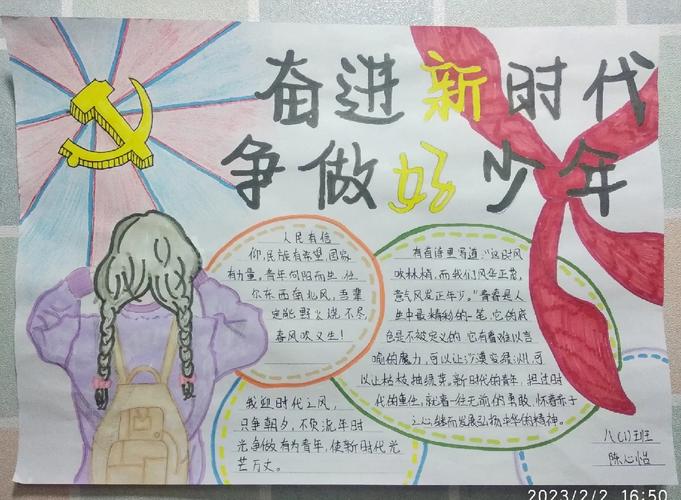 奋进新时代
争做好少年
人民有信
仰,民族有希望,国家
有力量。青年向阳而生,任
尔东西南北风,吾辈
定能野火烧不尽,
春风吹又生!
有首诗里写道:“这时风
吹林梢,而我们风华正茂,
意气风发正年少。”青春是人
生中最精彩的一笔,它的底
色是不被定义的,它有着难以言
喻的魔力,可以让沙漠变绿洲,可
以让枯枝抽绿芽。新时代的青年,担过时
代的重任,就着一往无前的勇敢,怀着赤子
之心,继而发展弘扬中华的精神。
我迎时代之风,
只争朝夕,不负流年时
光,争做有为青年,使新时代光
芒万丈。
八(1)班
陈心怡
2023/2/2 16:50